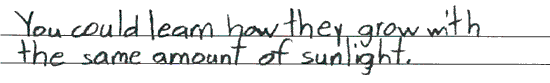 You could learn how they grow with
the same amount of sunlight.